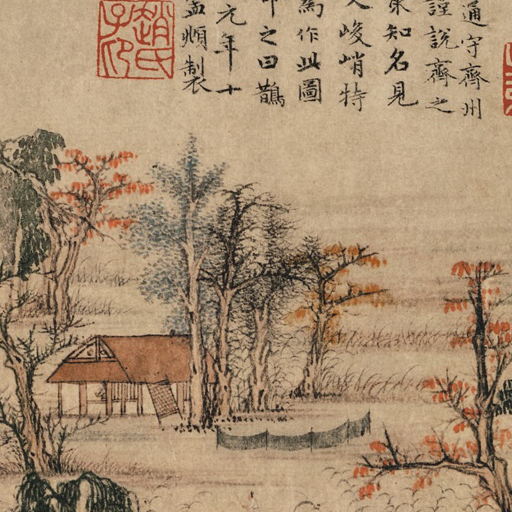 通守齊州
謹說齊之
知名見
峻峭特
為作此圖
之曰鵲
元年十
孟頫製
趙氏子昂